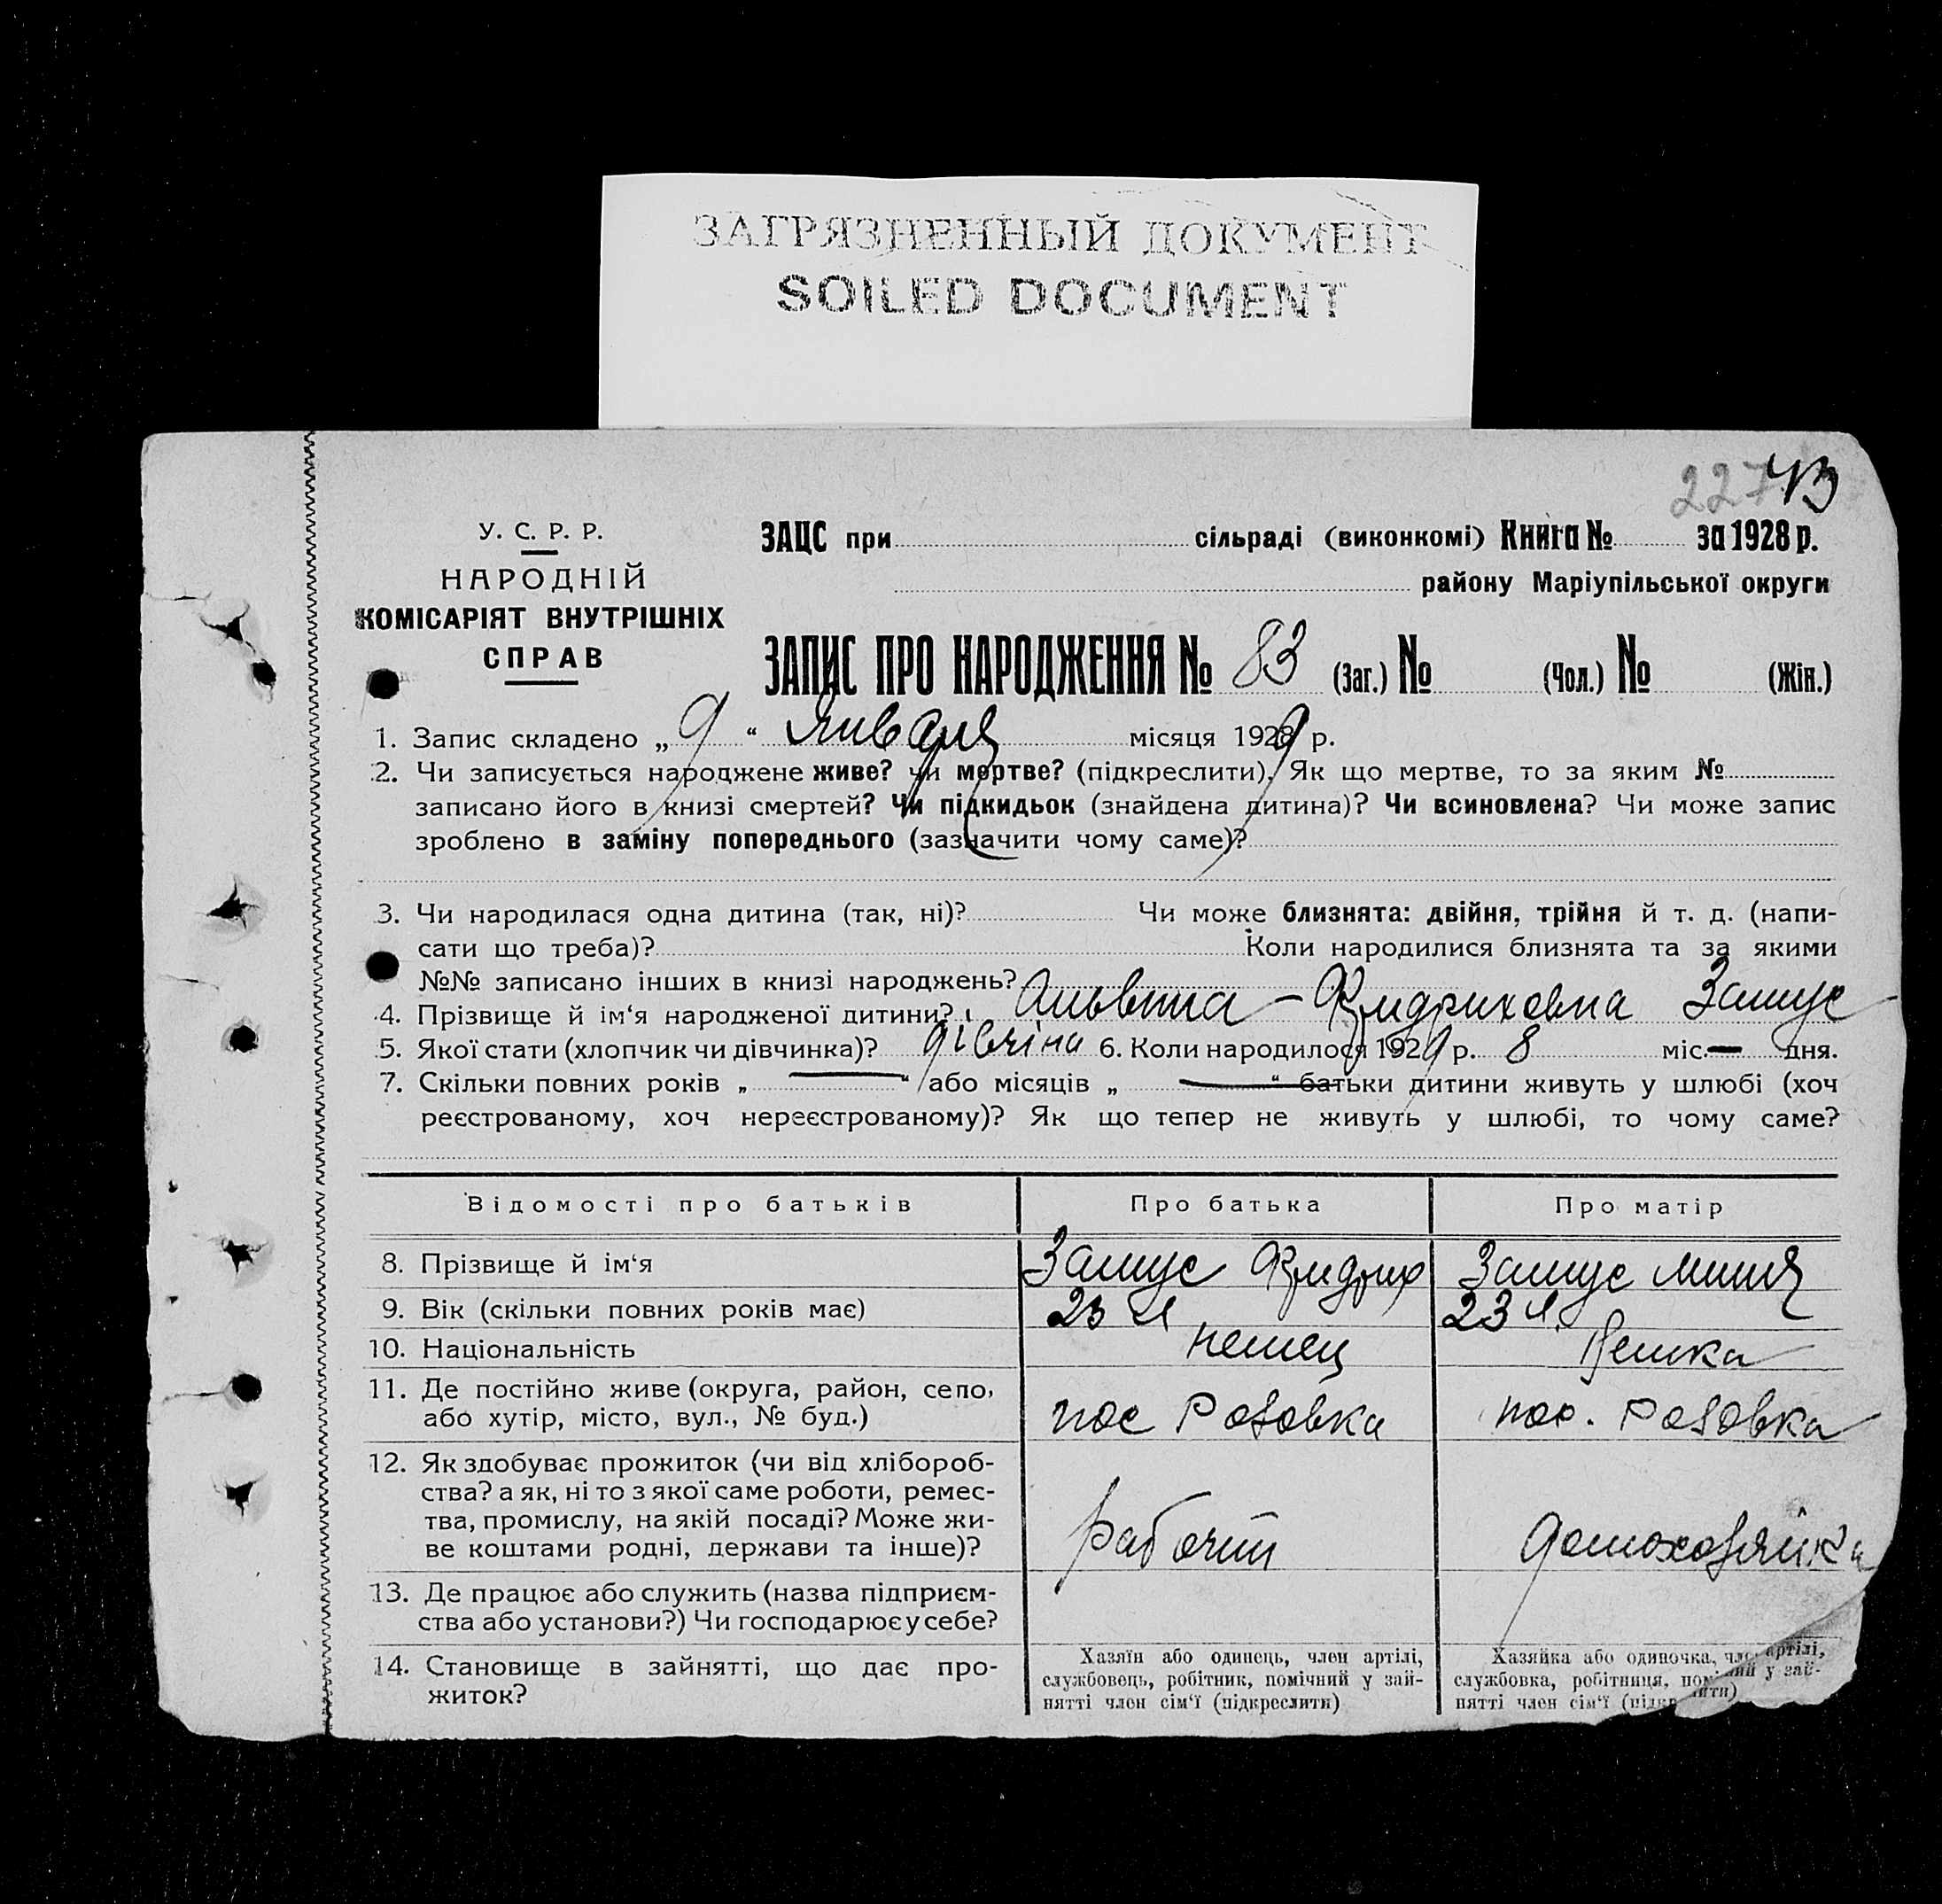 ЗАГРЯЗНЕННЫЙ ДОКУМЕНТ
SOILED DOCUMENT
227 43
У. С. Р. Р.
НАРОДНІЙ
КОМІСАРІЯТ ВНУТРІШНІХ
СПРАВ
ЗАЦС при сільраді (виконкомі) Книга № за 1928 р.
району Маріупільської округи
ЗАПИС ПРО НАРОДЖЕННЯ № 83 (Заг.) № (Чол.) № (Жін.)
1. Запис складено „ 9 “ Января місяця 1929 р.
2. Чи записується народжене живе? чи мертве? (підкреслити). Як що мертве, то за яким №
записано його в книзі смертей? Чи підкидьок (знайдена дитина)? Чи всиновлена? Чи може запис
зроблено в заміну попереднього (зазначити чому саме)?
3. Чи народилася одна дитина (так, ні)? Чи може близнята: двійня, трійня й т. д. (напи-
сати що треба)? Коли народилися близнята та за якими
№№ записано інших в книзі народжень?
4. Прізвище й ім‘я народженої дитини? Фридриховна
5. Якої стати (хлопчик чи дівчинка)? дівчіна 6. Коли народилося 1929 р. 8 міс. — дня.
7. Скільки повних років „ — “ або місяців „ — “ батьки дитини живуть у шлюбі (хоч
реєстрованому, хоч нереєстрованому)? Як що тепер не живуть у шлюбі, то чому саме?
Відомості про батьків Про батька Про матір
8. Прізвище й ім‘я Фридрих
9. Вік (скільки повних років має) 23 23
10. Національність немец Немка
11. Де постійно живе (округа, район, село,
або хутір, місто, вул., № буд.) пос Розовка пос. Розовка
12. Як здобуває прожиток (чи від хлібороб-
ства? а як, ні то з якої саме роботи, ремес-
тва, промислу, на якій посаді? Може жи-
ве коштами родні, держави та інше)? рабочий домохозяйка
13. Де працює або служить (назва підприєм-
ства або установи?) Чи господарює у себе?
14. Становище в зайнятті, що дає про-
житок?
Хазяїн або одинець, член артілі,
службовець, робітник, помічний у зай-
нятті член сім‘ї (підкреслити)
Хазяйка або одиночка, артілі,
службовка, робітниця, у зай-
нятті член сім‘ї